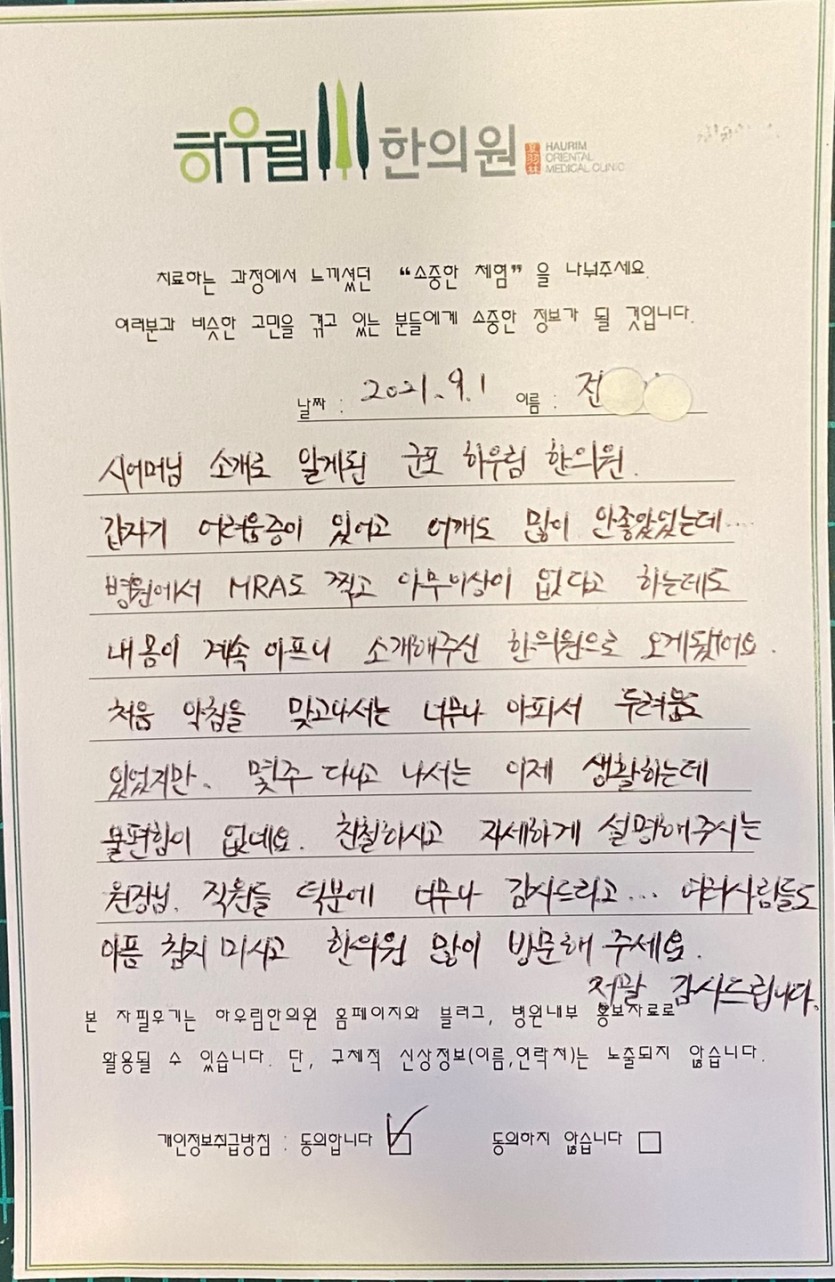 하우림 한의원 夏羽林 HAURIM
ORIENTAL
MEDICAL CLINIC
치료하는 과정에서 느끼셨던 “소중한 체험” 을 나눠주세요.
여러분과 비슷한 고민을 겪고 있는 분들에게 소중한 정보가 될 것입니다.
날짜 : 2021. 9. 1 이름 : 전
시어머님 소개로 알게된 군포 하우림 한의원.
갑자기 어려움증이 있어고 어깨도 많이 안좋았었는데....
병원에서 MRA도 찍고 아무이상이 없다고 하는데도
내몸이 계속 아프니 소개해주신 한의원으로 오게됐어요.
처음 약침을 맞고나서는 너무나 아파서 두려움도
있었지만. 몇주 다니고 나서는 이제 생활하는데
불편함이 없네요. 친절하시고 자세하게 설명해주시는
원장님. 직원들 덕분에 너무나 감사드리고... 여러사람들도
아픔 참지 마시고 한의원 많이 방문해 주세요.
정말 감사드립니다.
본 자필후기는 하우림한의원 홈페이지와 블러그, 병원내부 홍보자료로
활용될 수 있습니다. 단, 구체적 신상정보(이름,연락처)는 노출되지 않습니다.
개인정보취급방침 : 동의합니다 동의하지 않습니다